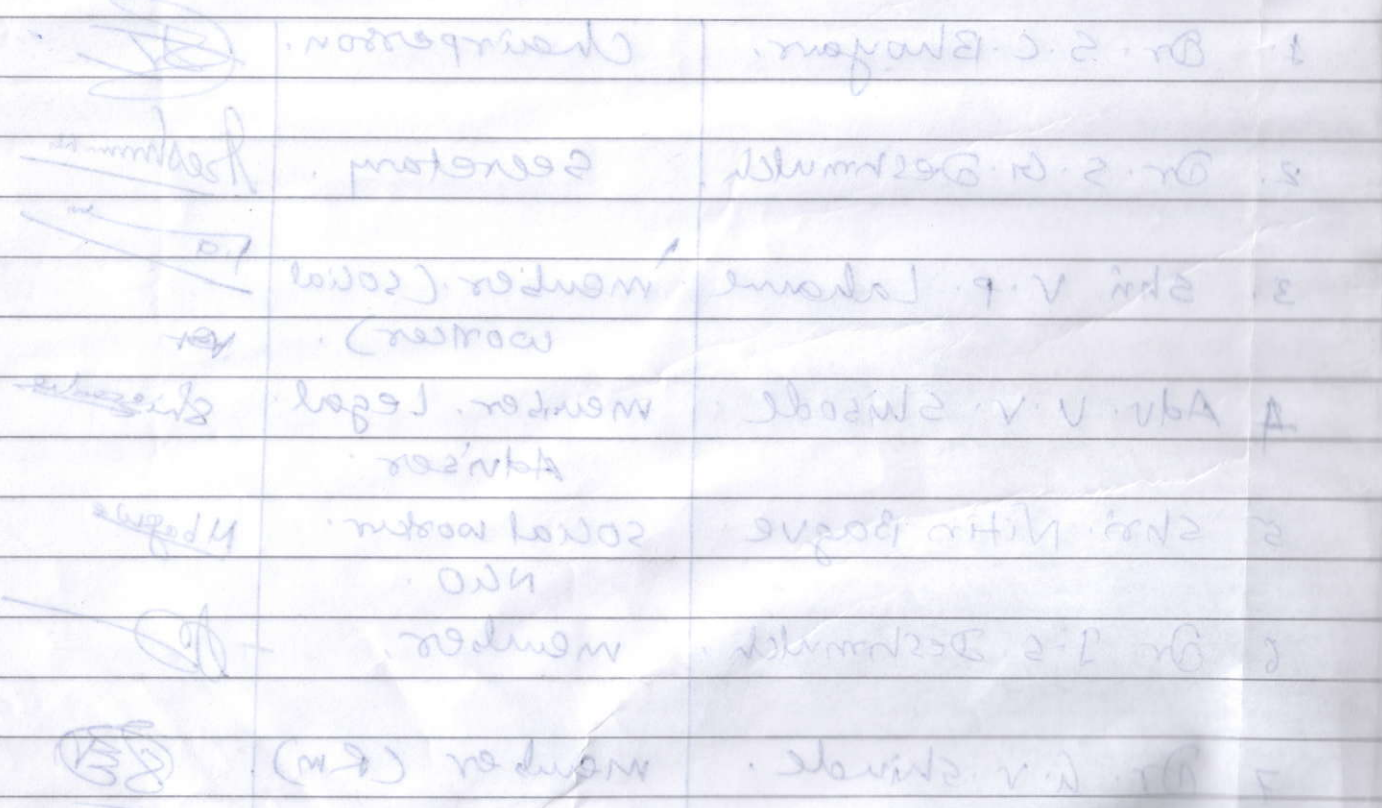 1. Dr. S. C. Bhoyar. Chairperson.
2. Dr. S. G. Deshmukh. Secretary. Deshmukh
3. Shri V. P. Lahane member (social
worker).
4 Adv. U. V. Shisode member. Legal
Adviser
5 Shri. Nitin Bagve social worker. Nbagve
NGO
6 Dr J. S. Deshmukh. member.
7 Dr. G. V. Shinde. member (RM).